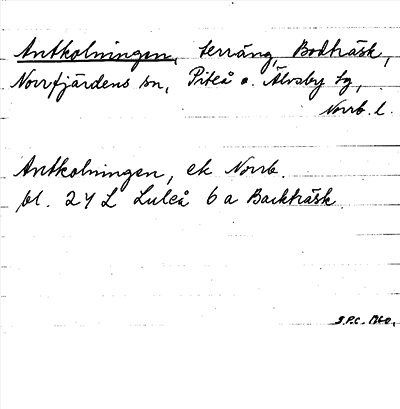 Antkolningen, terräng, Bodträsk,
Norrfjärdens sn, Piteå o. Älvsby tg,
Norrb. l.
Antkolningen, ek Norrb.
bl. 24 L Luleå 6 a Backträsk.
S.P.C.